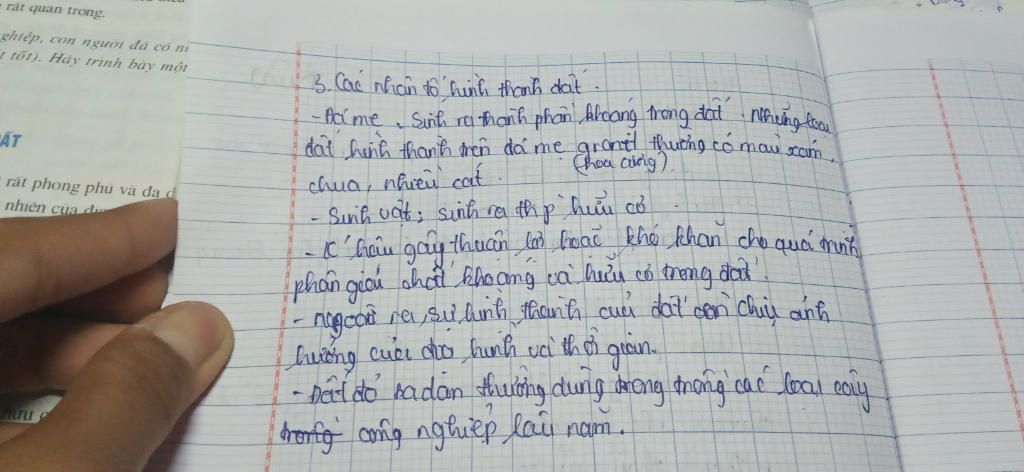 rất quan trọng.
nghiệp, con người đã có
tốt). Hãy trình bày một
ĐẤT
rất phong phú và đa d
nhiên của
3. Các nhân tố hình thành đất.
- Đá mẹ, sinh ra thành phần khoáng trong đất. Những loại
đất hình thành trên đá mẹ granit thường có màu xám,
(hoa cương)
chua, nhiều cát.
- Sinh vật; sinh ra th p hữu cơ
- K hậu gây thuận lợi hoặc khó khăn cho quá trình
phân giải chất khoáng và hữu cơ trong đất.
- ngoài ra, sự hình thành của đất còn chịu ảnh
hưởng của địa hình và thời gian.
- Đất đỏ badan thường dùng trong trồng các loại cây
trong công nghiệp lâu năm.